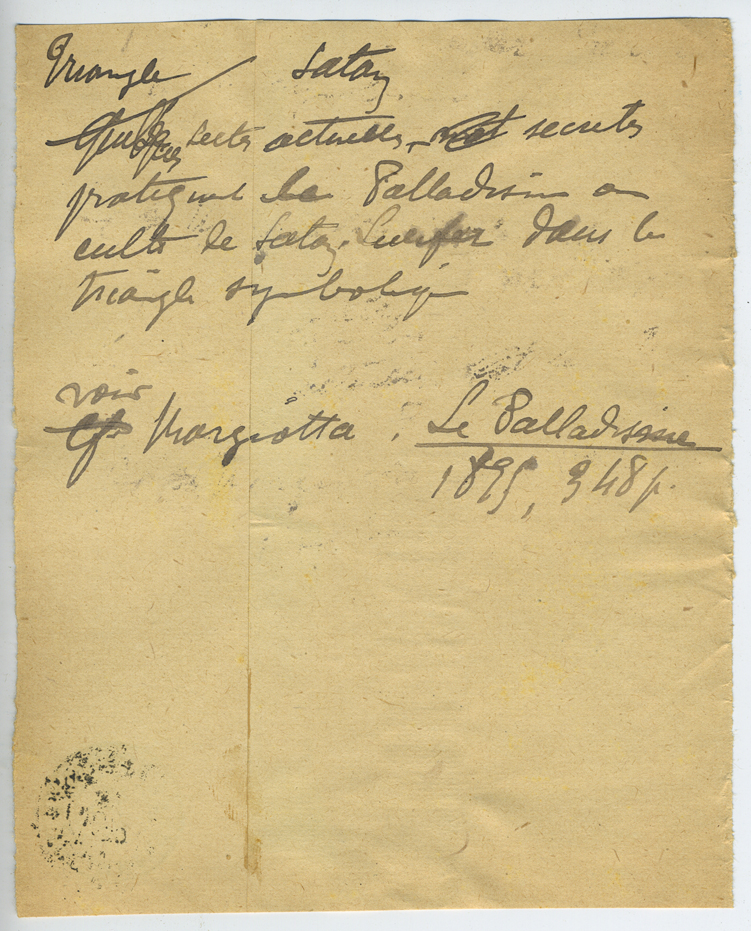 Triangle Satan
sectes actuelles, secrètes
pratiquent le Palladisme ou
culte de Satan. Lucifer dans le
triangle symbolique
voir
Margiotta. Le Palladisme
1895, 348 p.